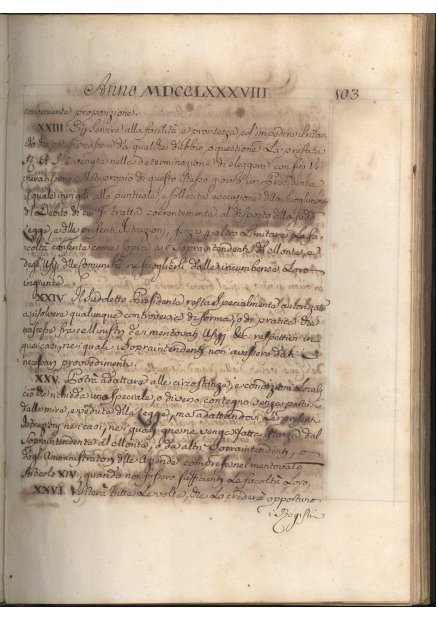 Anno MDCCLXXXVIII
103
conveniente proposizione.
XXIII. alla facilità, e prontezza, ed impedire il ritar
do che potesse nascere da qualche dubbio, o questione La prefata
S. A. S. è venuta nella determinazione di eleggere con suo Ve
Motuproprio di questo stesso giorno un Presidente
il quale invigili alla puntuale, e sollecita esecuzione
Debito di cui si tratta coerentemente al disposto della
Legge, e delle presenti Istruzioni, senza Limitare La fa
coltà come sopra ai Sopraintendenti del Monte, e
degli Ufizj delle Comunità, nè scioglierli dalle incumbenze Loro
ingiunte.
XXIV. Il suddetto Presidente resta specialmente autorizzato
a risolvere qualunque controversia di forma, o di pratica che
nascesse fra i Ministri dei mentovati Ufizj dei respettivi
nei quali i Sopraintendenti non avessero dati i
necessarj provvedimenti.
XXV. Potrà adattare alle circostanze, e condizioni Locali
ciò che richieda una speciale, o diverso contegno senza partirsi
dalle mire, e vedute della Legge, ma adattandovi Le presenti
Istruzioni nei casi, nei quali gliene venga fatta istanza dal
Sopraintendente del Monte, o da altri Sopraintendenti, o
dagli Amministratori delle Aziende comprese nel mentovato
Articolo XIV, quando non fossero sufficienti Le facoltà Loro.
XXVI. tutte Le volte, che Lo crederà opportuno
i Registri